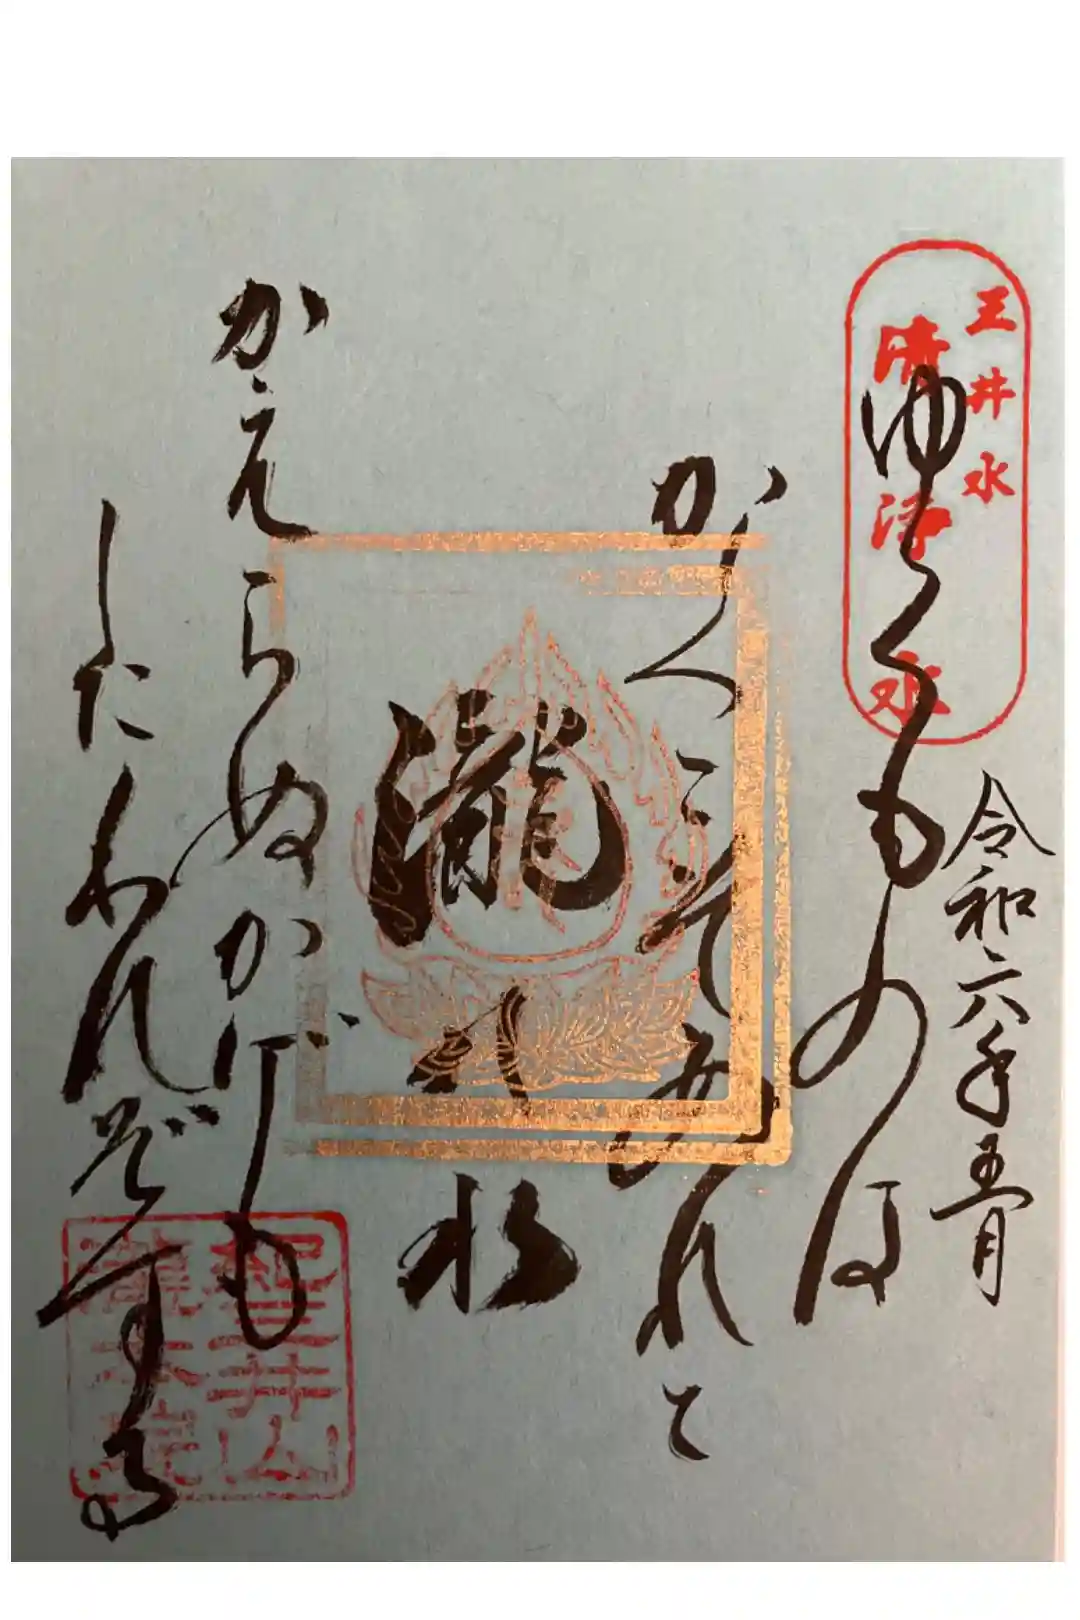 三井水
清浄水
令和六年五月
ゆくものは
かくこそあれと
瀧 水
かえらぬかげも
したわれぞする
紀三井山